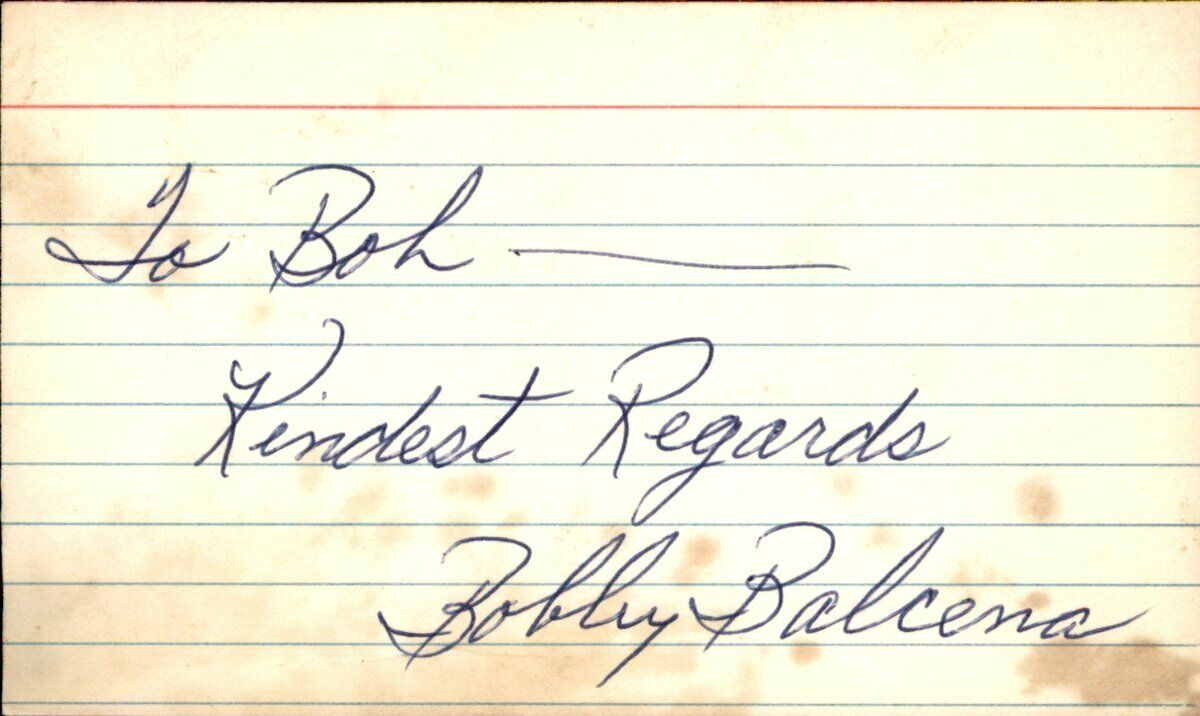 To Bob —
Kindest Regards
Bobby Balcena